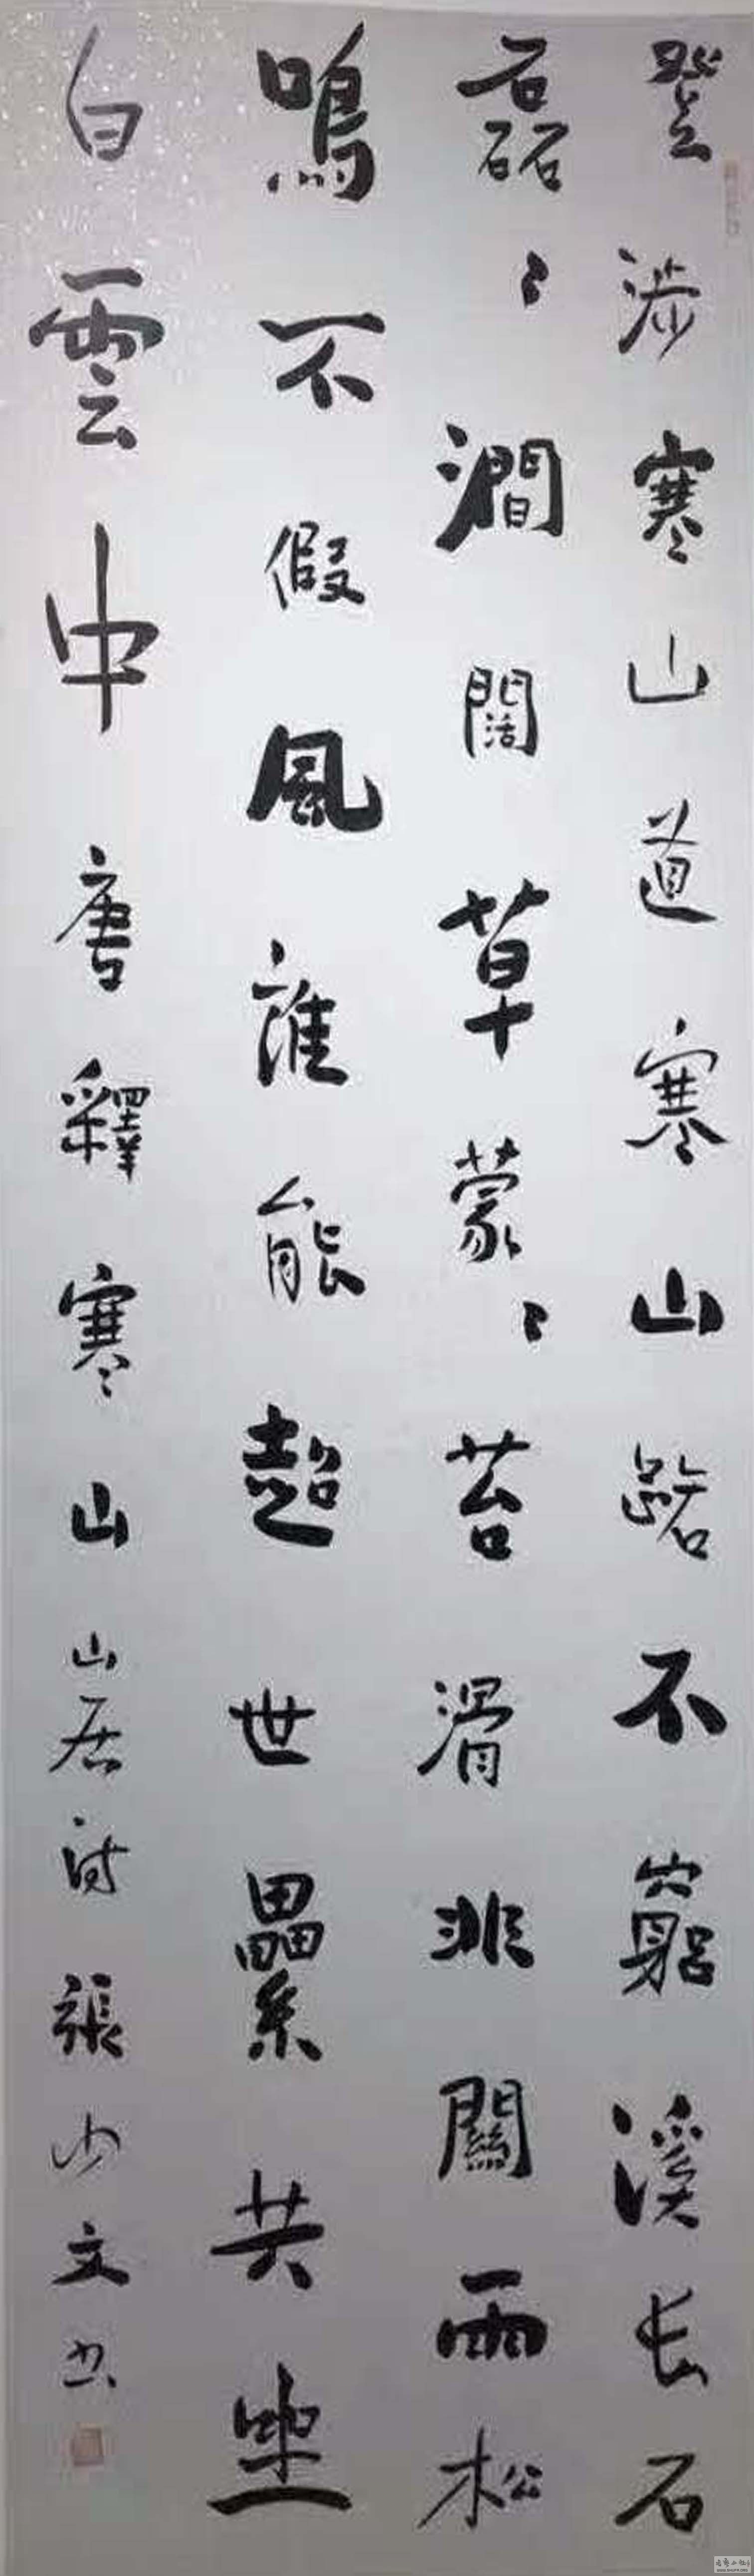 登涉寒山道寒山路不窮溪長石
磊々澗闊草蒙々苔滑非關雨松
鳴不假風誰能超世累共坐
白雲中唐釋寒山山居詩張少文書